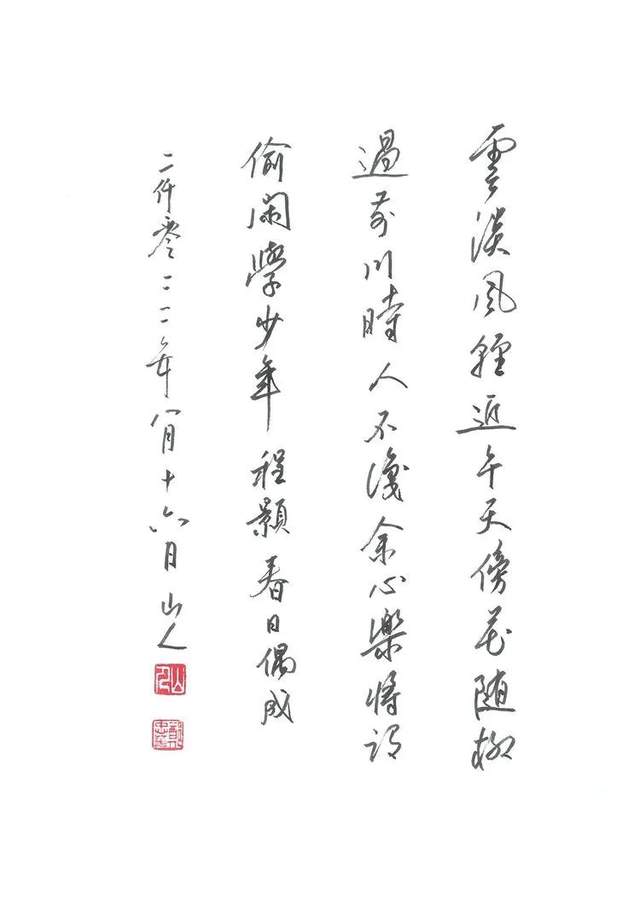 雲淡风輕近午天傍花随柳
過前川時人不識余心樂將謂
偷閑學少年程顥春日偶成
二仟零二二年八月十六日山人
山人